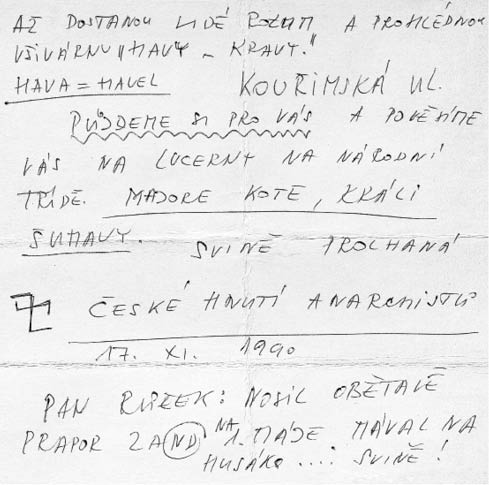 AŽ DOSTANOU LIDÉ ROZUM A PROHLÉDNOU
VŠIVÁRNU "HAVY - KRAVY."
HAVA = HAVEL KOUŘIMSKÁ UL.
PŮJDEME SI PRO VÁS A POVĚSÍME
VÁS NA LUCERNY NA NÁRODNÍ
TŘÍDĚ. KOTE, KRÁLI
ŠUMAVY. SVINĚ PROLHANÁ
ČESKÉ HNUTÍ ANARCHISTŮ
17. XI. 1990
PAN : NOSIL OBĚTAVĚ
PRAPOR ZA ND NA 1. MÁJE MÁVAL NA
HUSÁKA .... SVINĚ!